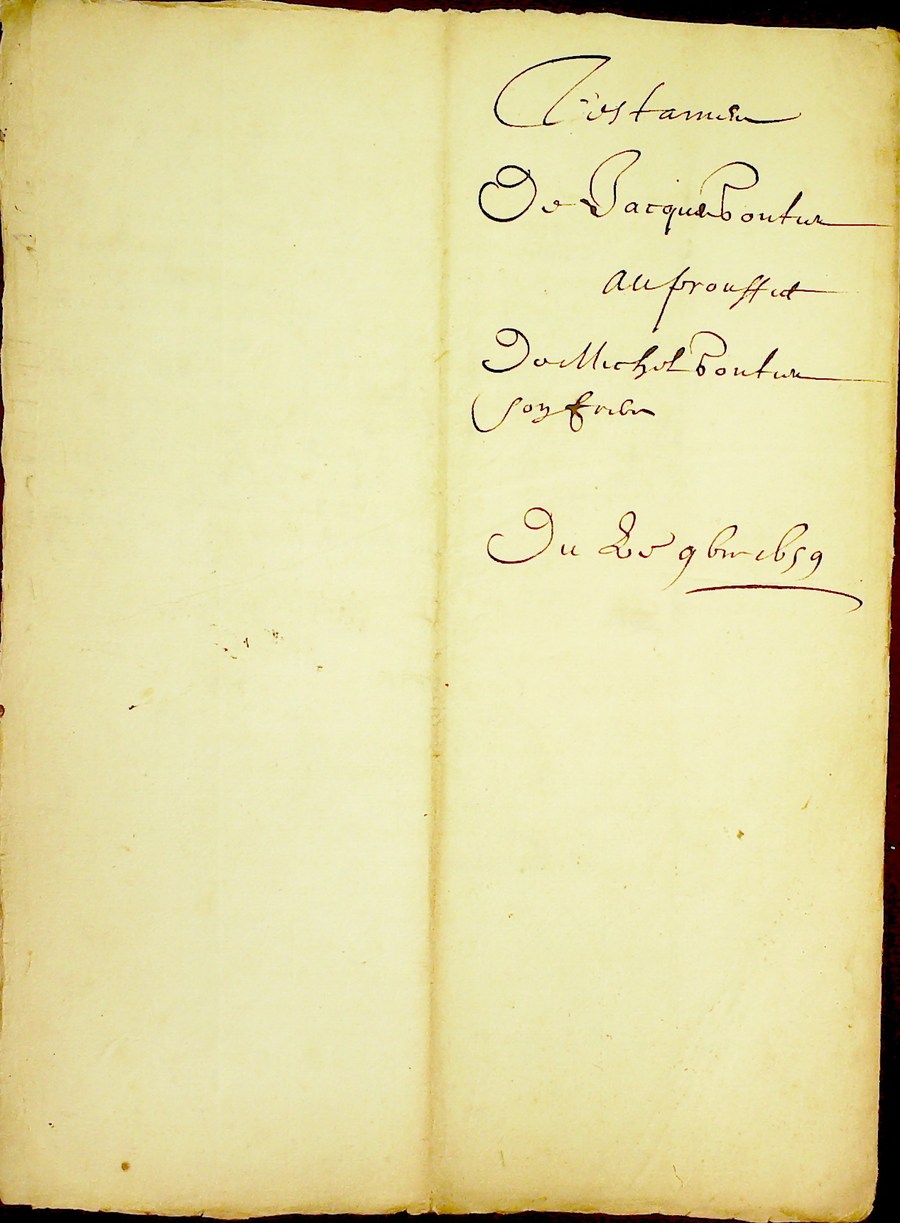 Testamen
De Jacques Pontier
au prouffict
De Michel Pontier
son frere
Du 9bre 1659